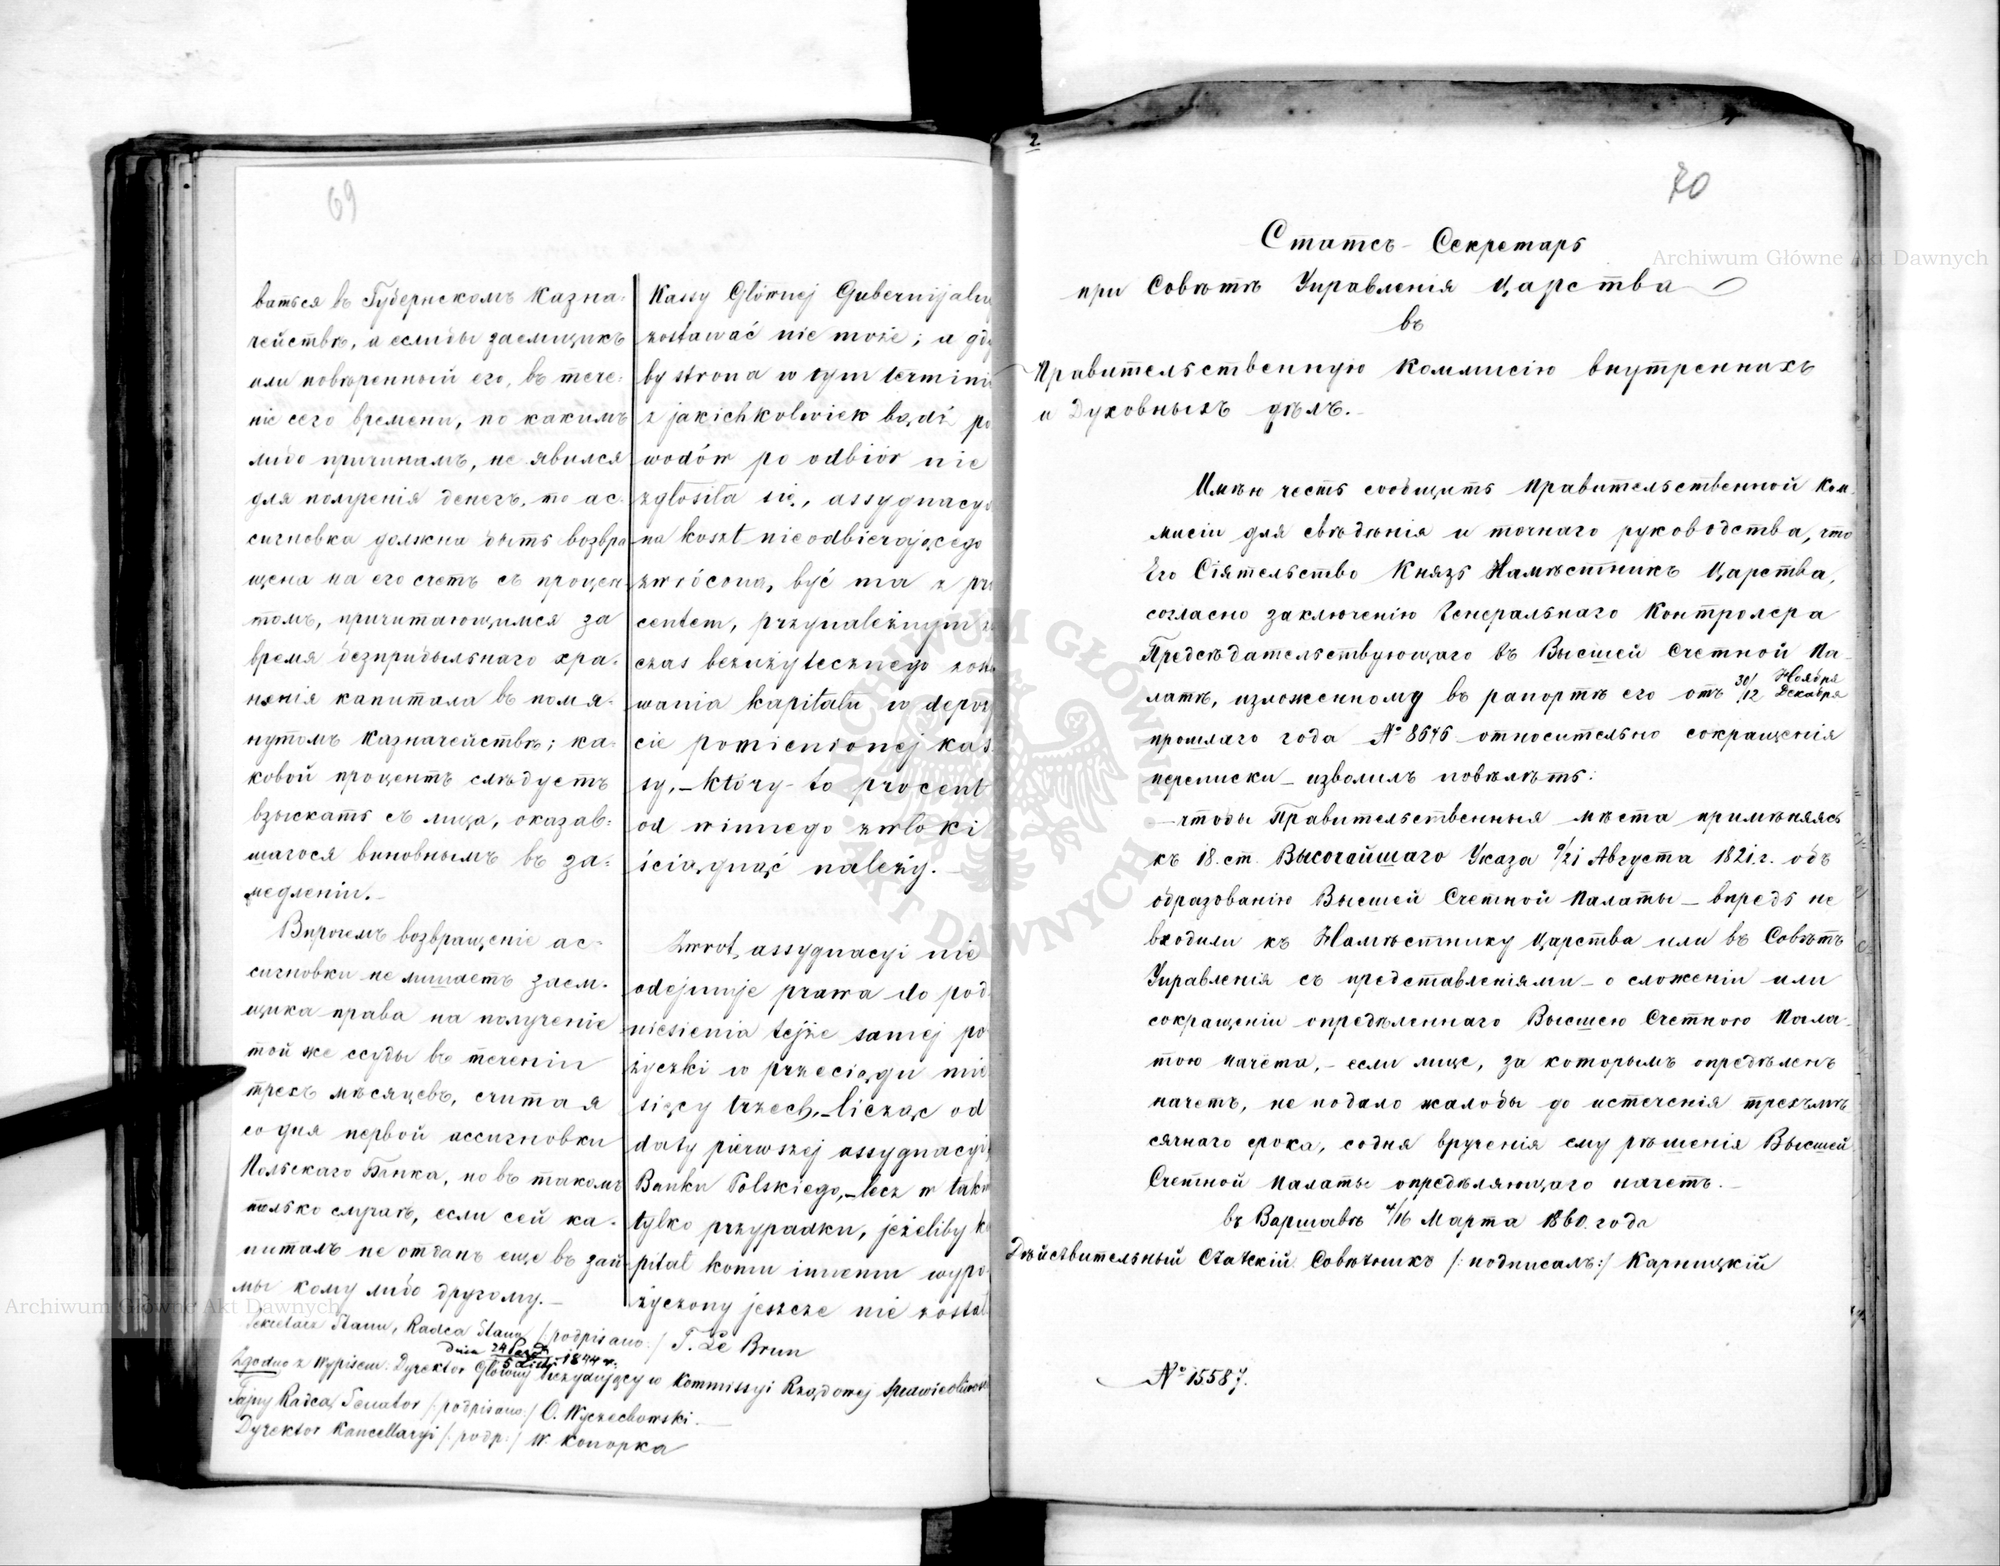 69
ваться въ Губернскомъ Казна-
чействѣ, а еслибы заемщикъ
или повѣренный его, въ тече-
ніе сего времени, по какимъ
либо причинамъ, не явился
для полученія денегъ, то ас-
сигновка должна быть возвра
щена на его счетъ съ процен
томъ, причитающимся за
время безприбыльнаго хра-
ненія капитала въ помя-
нутомъ Казначействѣ; ка-
ковой процентъ слѣдуетъ
взыскать съ лица, оказав-
шагося виновнымъ въ за-
медленіи.
Впрочемъ возвращеніе ас-
сигновки не лишаетъ заем-
щика права на полученіе
той же ссуды въ теченіи
трехъ мѣсяцевъ, считая
со дня первой ассигновки
Польскаго Банка, но въ такомъ
только случаѣ, если сей ка-
питалъ не отданъ еще въ зай
мы кому либо другому.
Kassy Głównej Gubernijaln
zostawać nie może; a gdy
by strona w tym termini
z jakichkolwiek bądź po
wodów po odbiór nie
zgłosiła się, assygnacya
na koszt nieodbierającego
zwróconą, być ma z pro
centem, przynależnym za
czas bezużytecznego zosta
wania kapitału w depozy
cie pomienionej kas
sy, – który to procent
od winnego zwłoki
ściągnąć należy. –
Zwrot, assygnacyi nie
odejmuje prawa do pod
niesienia tejże samej po
życzki w przeciągu mie
sięcy trzech, – licząc od
daty pierwszej assygnacyi
Banku Polskiego, – lecz w takim
tylko przypadku, jeżeliby ka
pitał komu innemu wypo
życzony jeszcze nie został
Sekretarz Stanu, Radca Stanu /:podpisano:/ T. Le Brun
dnia 5 Lut. 1844 r.
Zgodno z Wypisem: Dyrektor Główny Prezydujący w Kommissyi Rządowej Sprawiedliwości
Tajny Radca, Senator /:podpisano:/ O. Wyczechowski. –
Dyrektor Kancellaryi /:podp:/ W. Konopka
2
70
Статсъ – Секретарь
при Совѣтѣ Управленія Царства
въ
Правительственную Коммисію внутреннихъ
и Духовныхъ дѣлъ. –
Имѣю честь сообщить Правительственной Ком-
мисіи для свѣдѣнія и точнаго руководства, что
Его Сіятельство Князь Намѣстникъ Царства,
согласно заключенію Генеральнаго Контролера
Предсѣдательствующаго въ Высшей Счетной Па-
латѣ, изложенному въ рапортѣ его отъ 30/12 Ноября Декабря
прошлаго года № 8676 относительно сокращенія
переписки – изволилъ повелѣть:
– чтобы Правительственныя мѣста примѣняясь
къ 18. ст. Высочайшаго Указа 9/21 Августа 1821. г. объ
образованію Высшей Счетной Палаты – впредь не
входили къ Намѣстнику Царства или въ Совѣтъ
Управленія съ представленіями – о сложеніи или
сокращеніи опредѣленнаго Высшею Счетною Пала-
тою начета, – если лице, за которымъ опредѣленъ
начетъ, не подало жалобы до истеченія трехъмѣ-
сячнаго срока, содня врученія ему рѣшенія Высшей
Счетной Палаты опредѣляющаго начетъ. –
въ Варшавѣ 4/16 Марта 1860. года
Дѣйствительный Статскій Совѣтникъ /:подписалъ:/ Карницкій
№ 15587.
Archiwum Główne Akt Dawnych
Archiwum Główne Akt Dawnych
ARCHIWUM GŁÓWNE AKT DAWNYCH